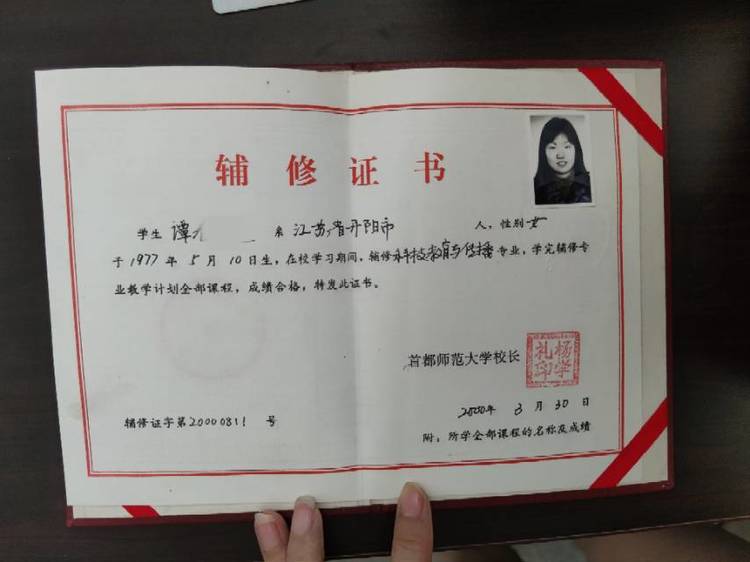 辅修证书
学生 谭 系 江苏省丹阳市 人，性别 女
于 1977 年 5 月 10 日生，在校学习期间，辅修 科技教育与传播 专业，学完辅修专
业教学计划全部课程，成绩合格，转发此证书。
首都师范大学校长
杨学礼印
2000年 3 月 30 日
辅修证字第 20000811 号
附：所学全部课程的名称及成绩